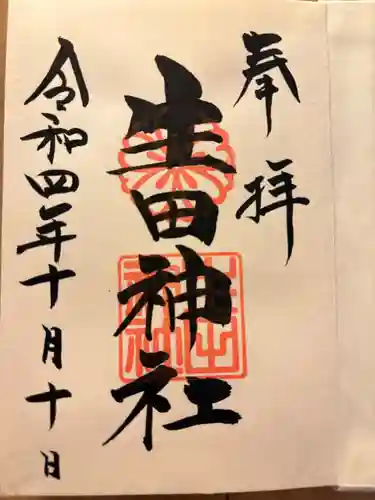 奉拝
生田神社
令和四年十月十日